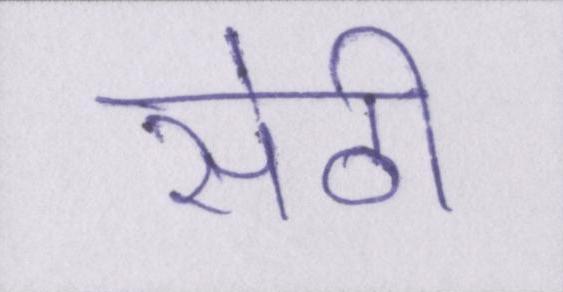 सेठी